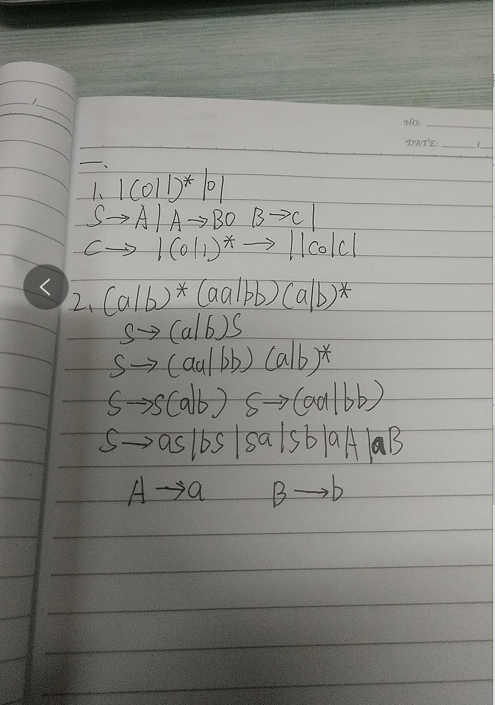 NO:
DATE:
一.
1. 1(0|1)* 101
S→A1 A→B0 B→C1
C→ 1(0|1)* → 1|C0|C1
2. (a|b)* (aa|bb)(a|b)*
S→(a|b)S
S→(aa|bb) (a|b)*
S→S(a|b) S→(aa|bb)
S→aS|bS|Sa|Sb|aA|aB
A→a B→b